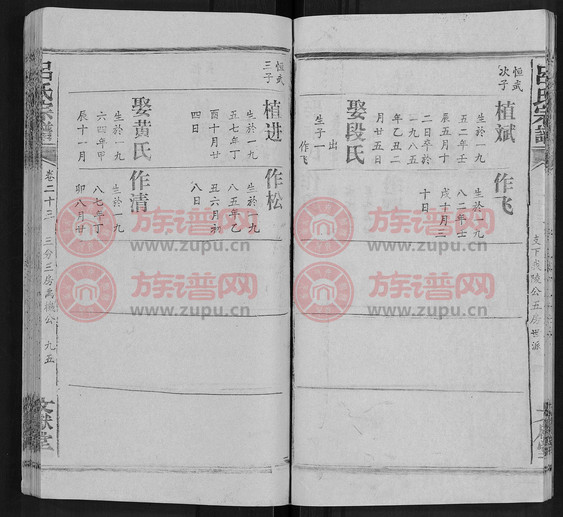 吕氏宗譜
恒武
次子
植斌
生於一九
五二年壬
辰五月
二日卒於
一九八五
年乙丑二
月廿五日
娶段氏
生子一
出
作飞
作飞
生於一九
八二年壬
戌十月三
十日
恒武
三子
植进
生於一九
五七年丁
酉十月廿
四日
娶黄氏
生於一九
六四年甲
辰十一月
作松
生於一九
八五年乙
丑六月初
八日
作清
生於一九
八七年丁
卯八月廿
吕氏宗譜
卷二十三
九五
文献堂
族谱网
www.zupu.cn
族谱网
www.zupu.cn
族谱网
www.zupu.cn
族谱网
www.zupu.cn